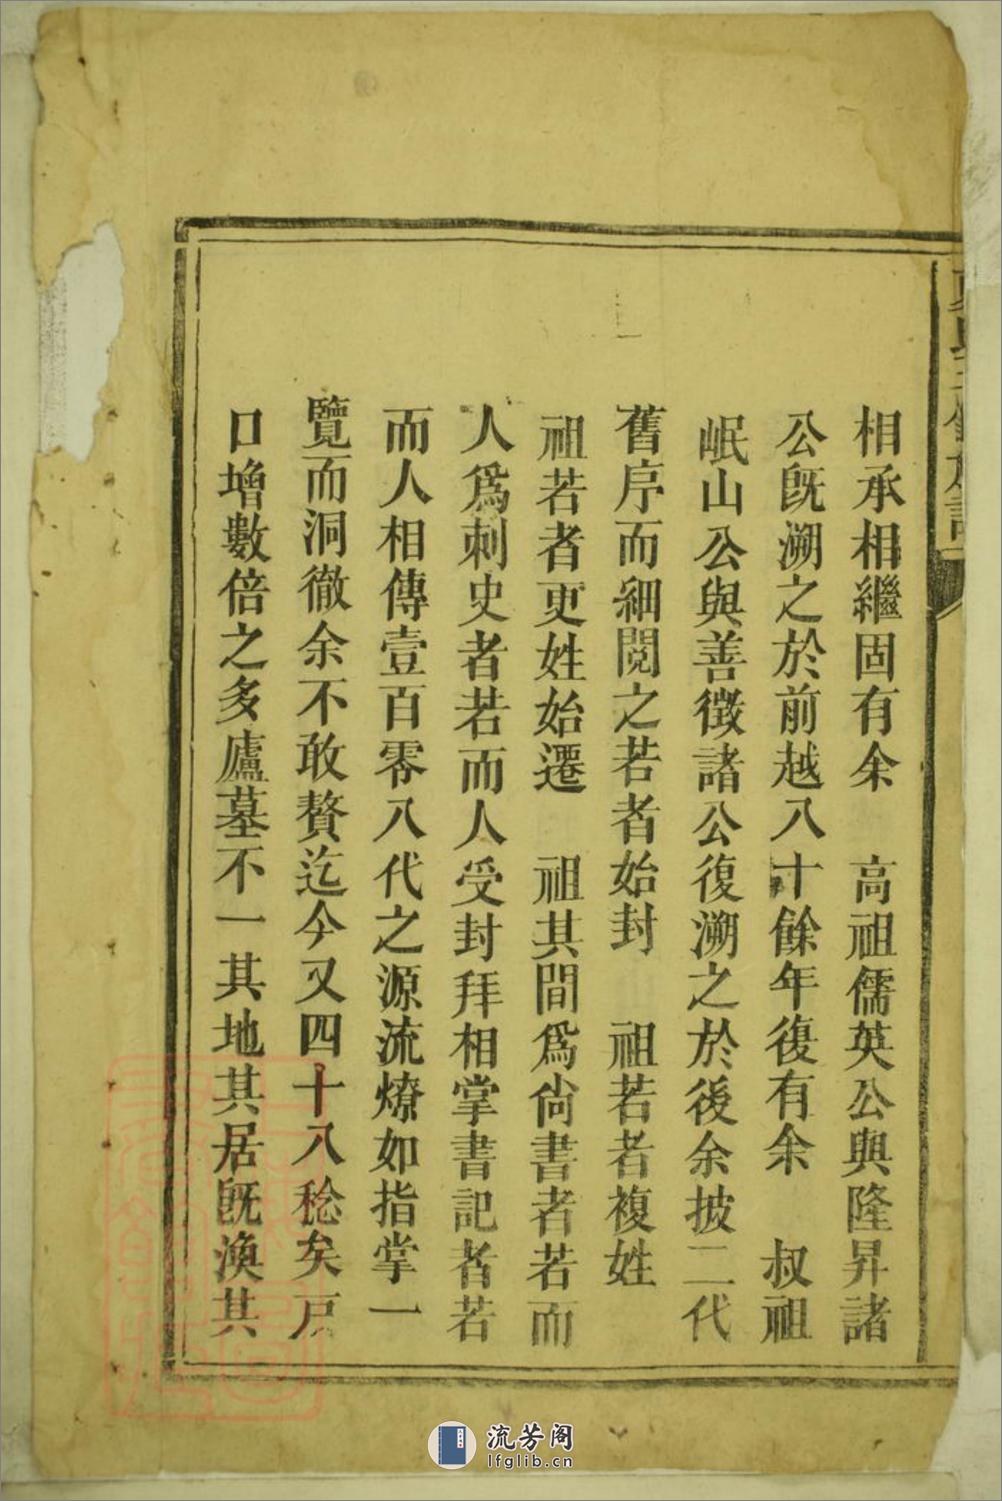 相承相繼固有余　高祖儒英公與隆昇諸
公既溯之於前越八十餘年復有余　叔祖
岷山公與善徵諸公復溯之於後余披二代
舊序而細閱之若者始封　祖若者複姓
祖若者更姓始遷　祖其間爲尙書者若而
人爲刺史者若而人受封拜相掌書記者若
而人相傳壹百零八代之源流燎如指掌一
覽而洞徹余不敢贅迄今又四十八稔矣戸
口增數倍之多廬墓不一其地其居既渙其
流芳阁
lfglib.cn